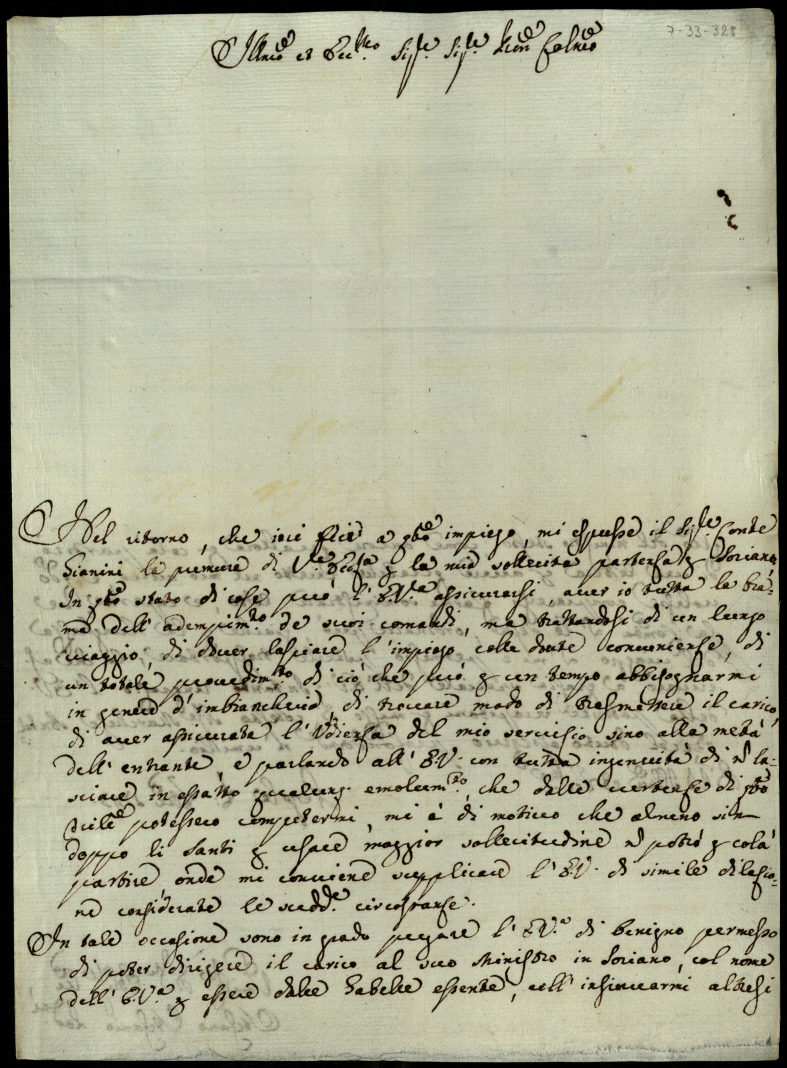 7-33-328
Illmo et Ecc.mo Sig.re Sig.re Pron Colmo
Nel ritorno, che ieri feci a qto impiego, mi espresse il Sig.re Conte
Gianini le premure di V.ra Ecc.za per la mia sollecita partenza per Soriano.
In qto stato di cose può l'E.V.a assicurarsi, aver io tutta la bra-
ma dell'adempim.to de suoi comandi, ma trattandosi di un lungo
viaggio, di dover lasciare l'impiego colle dovute convenienze, di
un totale provedim.to di ciò che può per un tempo abbisognarmi
in genere d'imbiancheria, di trovare modo di trasmettere il carico,
di aver assicurata l'Udienza del mio servizio sino alla metà
dell'entrante e parlando all'E.V. con tutta ingenuità di n la-
sciare in essatto qualunq. emolum.to, che dalle vertenze di qto
Civile potessero competermi, mi è di motivo che almeno sin
doppo li Santi per usare maggior sollecitudine n potrò per colà
partire, onde mi conviene supplicare l'E.V. di simile dilazio-
ne considerate le sudd.e circostanze.
In tale occasione sono in grado pregare l'E.V.a di benigno permesso
di poter dirigere il carico al suo Ministro in Soriano, col nome
dell'E.V.a per essere dalle Gabelle essente, coll'insinuarmi altresì